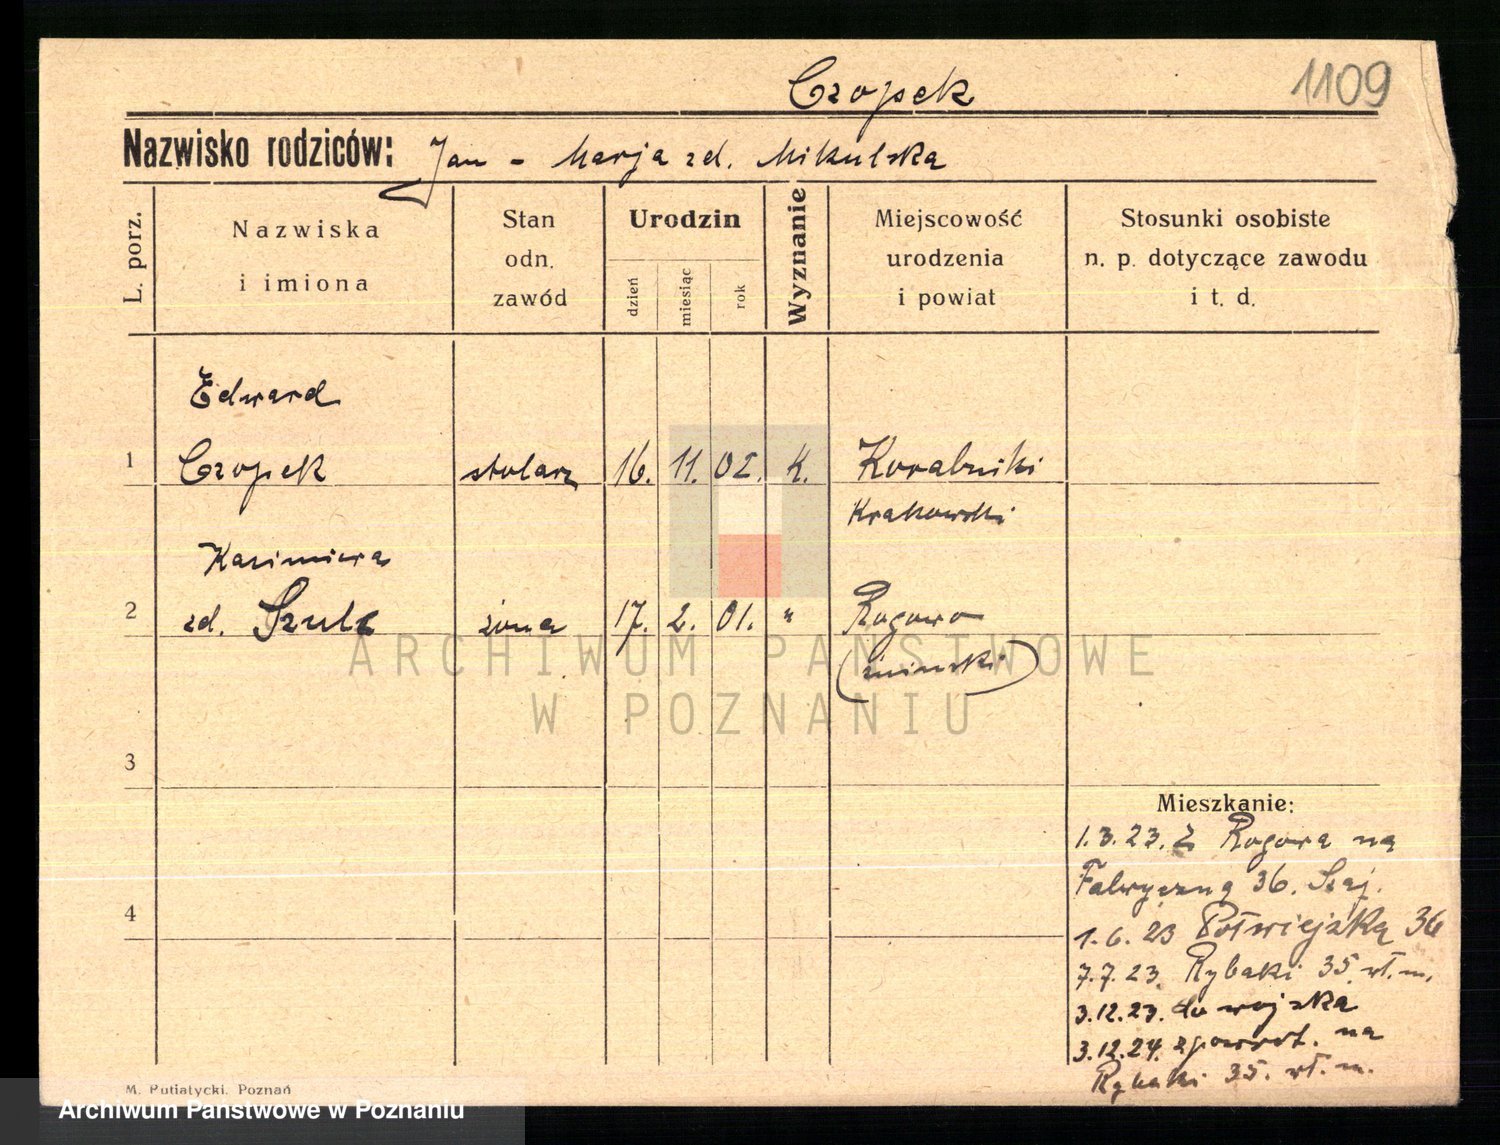 Czopek
1109
Nazwisko rodziców: Jan - Marja zd. Mikulska
L. porz.
Nazwiska
i imiona
Stan
odn.
zawód
Urodzin
dzień
miesiąc
rok
Wyznanie
Miejscowość
urodzenia
i powiat
Stosunki osobiste
n. p. dotyczące zawodu
i t. d.
Edward
1 Czopek stolarz 16. 11. 02. K. Korabniki
Krakowski
Kazimiera
2 zd. Szulc żona 17. 2. 01. " Rogowo
(żniński)
3
4
Mieszkanie:
1.3.23. Z Rogowa na
Fabryczną 36. Szaj.
1.6.23 Półwiejską 36
7.7.23. Rybaki 35 wł. m.
3.12.23. do wojska
3.12.24. zpowrot. na
Rybaki 35. wł. m.
M. Putiatycki. Poznań
ARCHIWUM PAŃSTWOWE
W POZNANIU
Archiwum Państwowe w Poznaniu